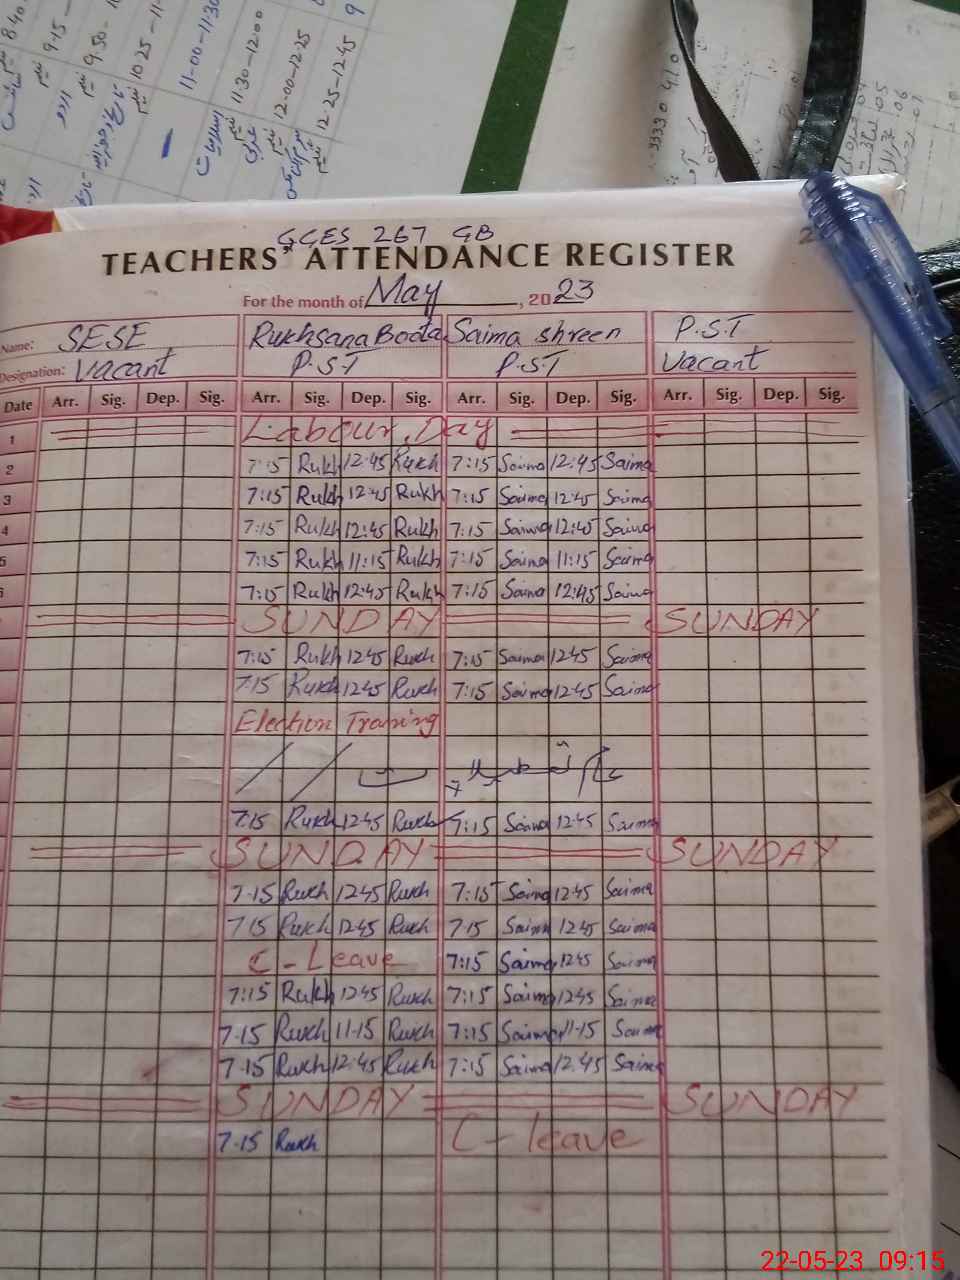 8.40
9.15 -
9.50 - 1
10.25 - 11
11-00-11-30
11-30-12.00
12-00-12.25
12.25-12.45
9
3333.0 41.0
04
.05
.06
.07
GGES 267 GB
TEACHERS' ATTENDANCE REGISTER
For the month of May, 2023
Name: SESE Rukhsana Boota Saima shreen P.S.T
Designation: Vacant P.S.T P.S.T Vacant
Date Arr. Sig. Dep. Sig. Arr. Sig. Dep. Sig. Arr. Sig. Dep. Sig. Arr. Sig. Dep. Sig.
1 Labour Day
2 7:15 Rukh 12:45 Rukh 7:15 Saima 12:45 Saima
3 7:15 Rukh 12:45 Rukh 7:15 Saima 12:45 Saima
4 7:15 Rukh 12:45 Rukh 7:15 Saima 12:45 Saima
5 7:15 Rukh 11:15 Rukh 7:15 Saima 11:15 Saima
6 7:15 Rukh 12:45 Rukh 7:15 Saima 12:45 Saima
SUNDAY SUNDAY
7:15 Rukh 12:45 Rukh 7:15 Saima 12:45 Saima
7:15 Rukh 12:45 Rukh 7:15 Saima 12:45 Saima
Election Traning
عام تعطیلات
7:15 Rukh 12:45 Rukh 7:15 Saima 12:45 Saima
SUNDAY SUNDAY
7-15 Rukh 12:45 Rukh 7:15 Saima 12:45 Saima
7-15 Rukh 12:45 Rukh 7-15 Saima 12:45 Saima
C - Leave 7:15 Saima 12:45 Saima
7:15 Rukh 12:45 Rukh 7:15 Saima 12:45 Saima
7-15 Rukh 11-15 Rukh 7:15 Saima 11-15 Saima
7-15 Rukh 12:45 Rukh 7:15 Saima 12.45 Saima
SUNDAY SUNDAY
7-15 Rukh C - leave
22-05-23 09:15